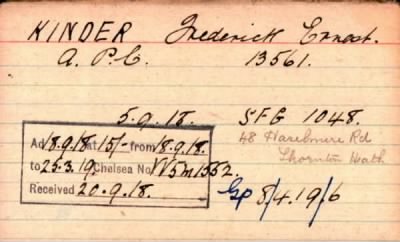 KINDER Frederick Ernest.
A. P. C. 13561.
5.9.18. SFG 1048.
48 Haselmere Rd
Thornton Heath
Ad 18.9.18 at 15/- from 18.9.18.
to 25.3.19, Chelsea No VV5m1352.
Received 20.9.18.
8/4.19/6